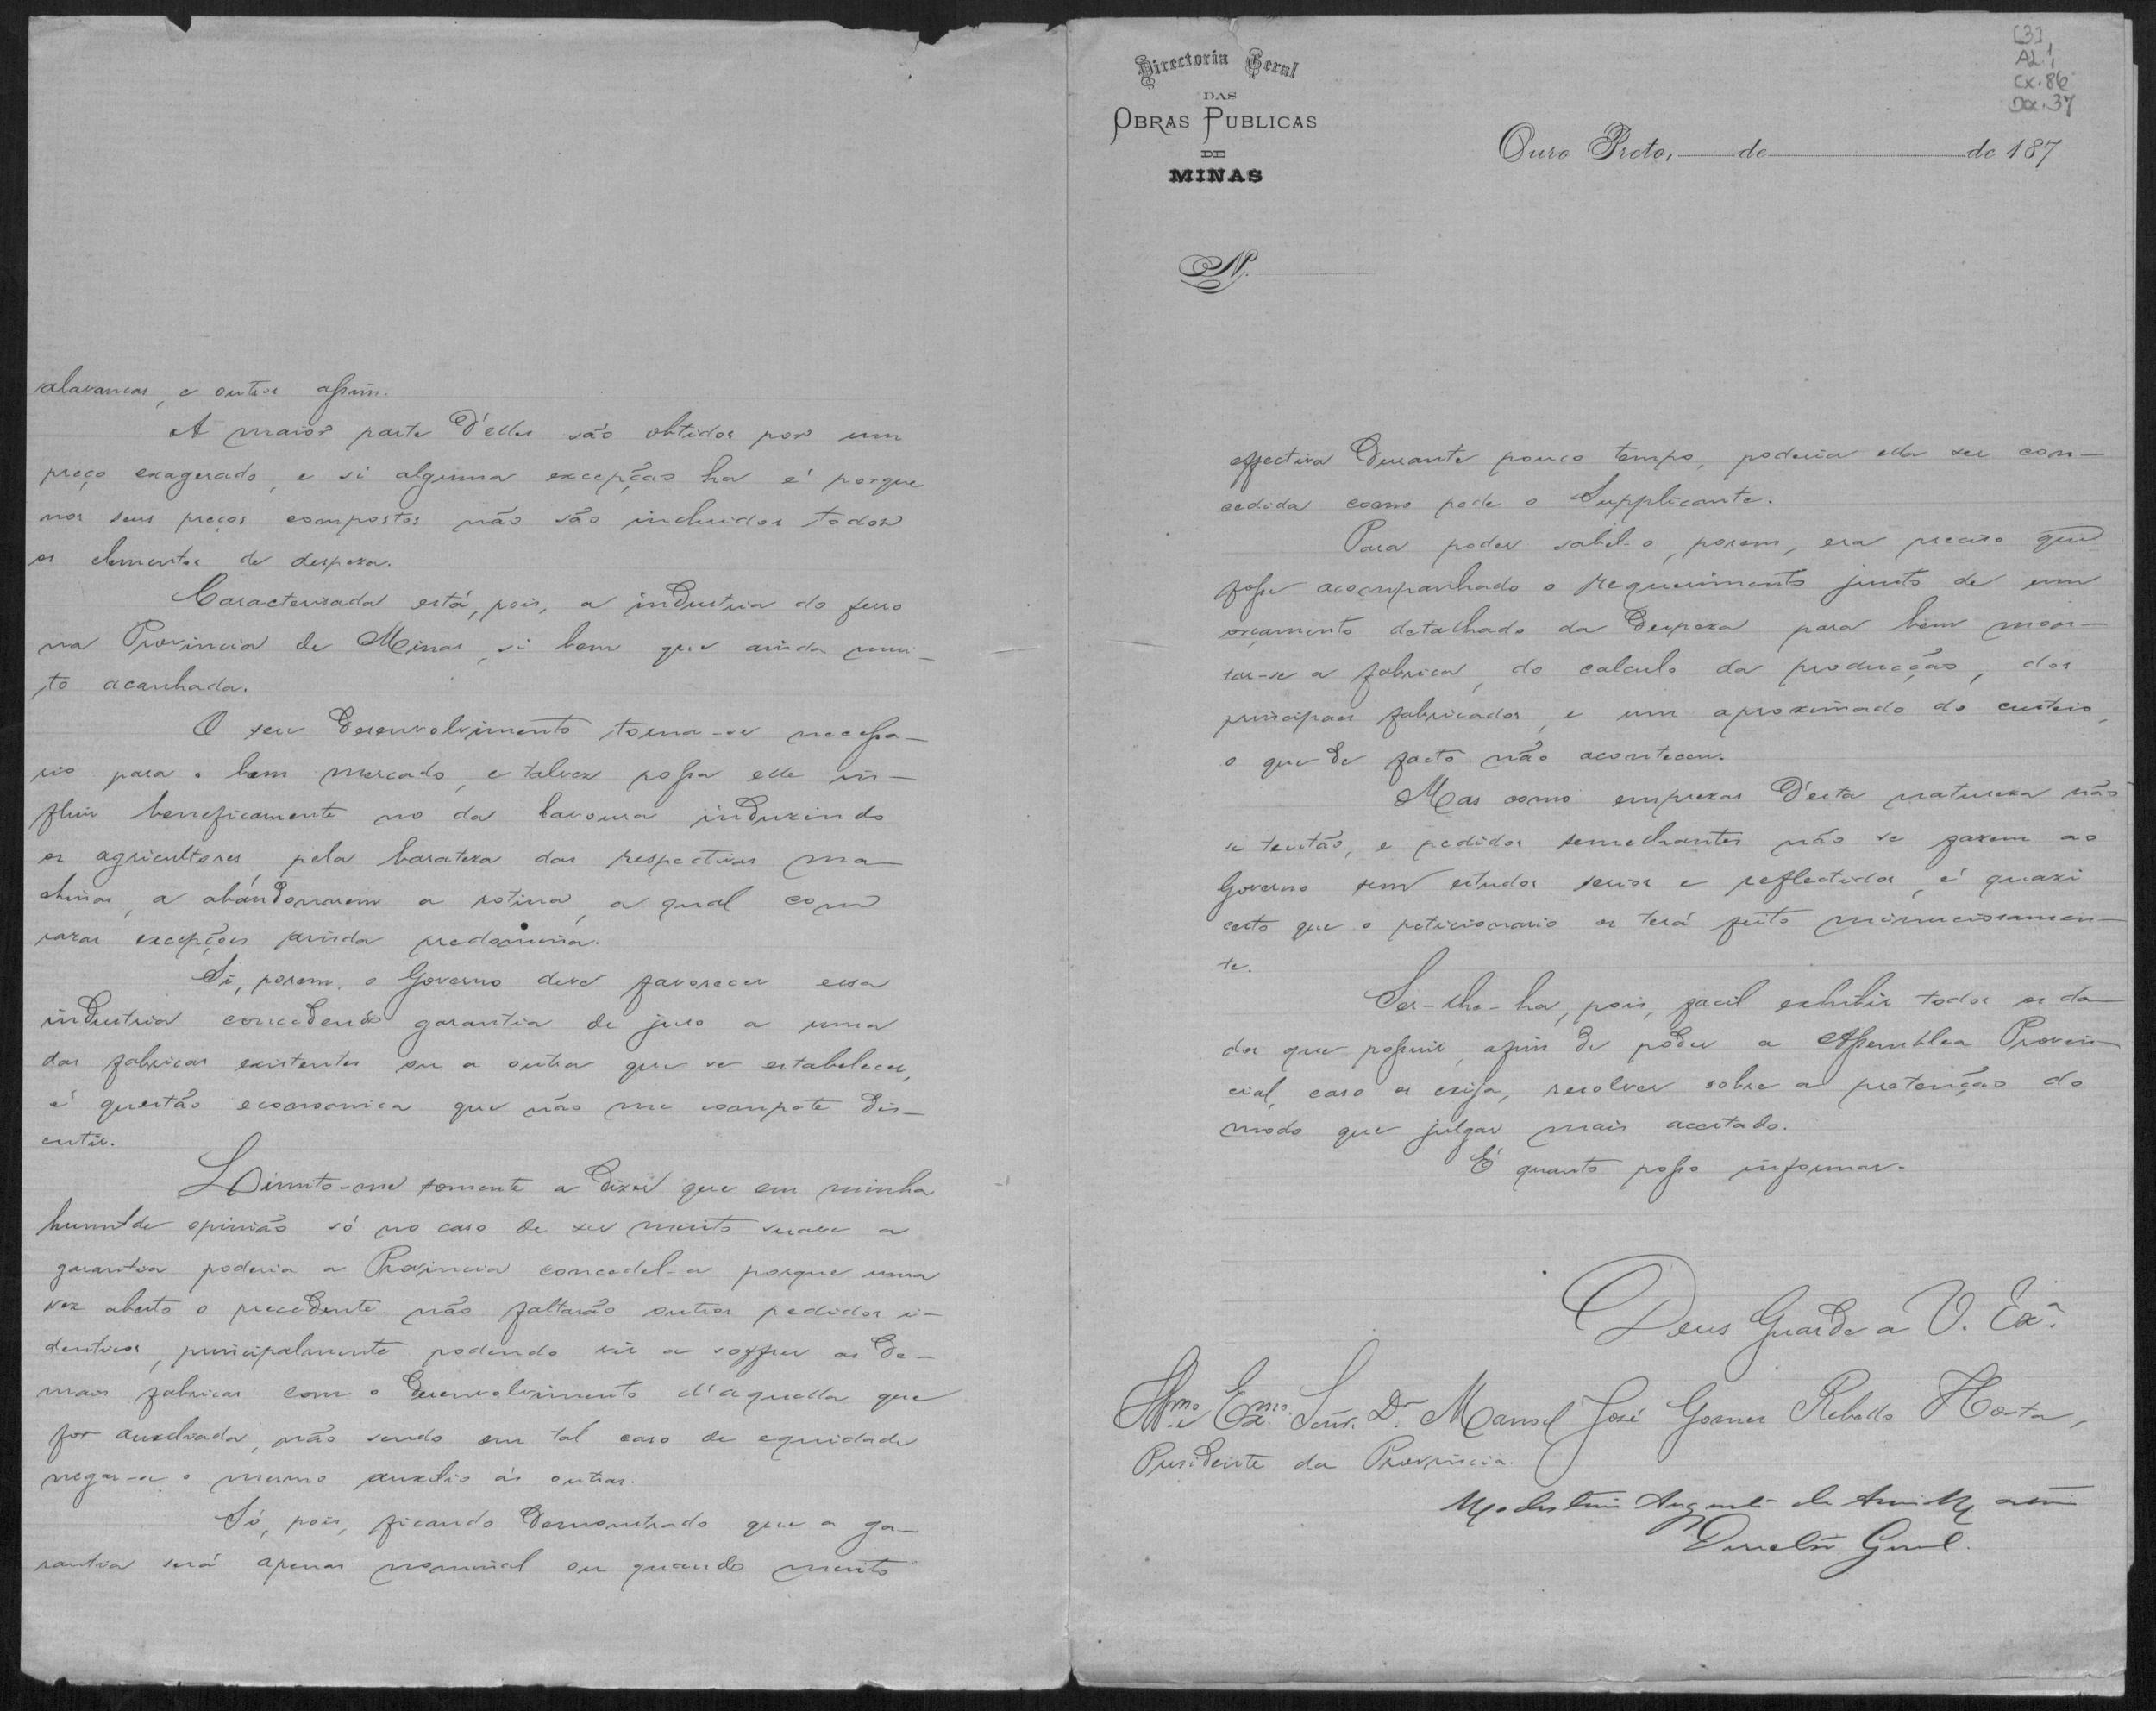 alavancas, e outros assim.
A maior parte d'elles são obtidos por um
preço exagerado, e si alguma excepção ha é porque
nos seus preços compostos não são incluidos todos
os elementos de despeza.
Caracterisada está, pois, a industria do ferro
na Provincia de Minas, si bem que ainda mui-
to acanhada.
O seu desenvolvimento torna-se necessa-
rio para o bem mercado, e talvez possa elle in-
fluir beneficamente no da lavoura induzindo
os agricultores, pela barateza das respectivas ma-
chinas, a abandonarem a rotina, a qual com
raras excepções ainda predomina.
Si, porem, o Governo deve favorecer essa
industria concedendo garantia de juro a uma
das fabricas existentes ou a outra que se estabelecer,
é questão economica que não me compete dis-
cutir.
Limito-me somente a dizer que em minha
humilde opinião só no caso de ser muito suave a
garantia poderia a Provincia concedel-a porque uma
vez aberto o precedente não faltarão outros pedidos i-
denticos, principalmente podendo vir a soffrer as de-
mais fabricas com o desenvolvimento d'aquella que
for auxiliada, não sendo em tal caso de equidade
negar-se o mesmo auxilio ás outras.
Só, pois, ficando demonstrado que a ga-
rantia será apenas nominal ou quando muito
[3]
AL.1
Cx.86
Dx.37
Directoria Geral
DAS
OBRAS PUBLICAS
DE
MINAS
Ouro Preto, de de 187
N.
effectiva durante pouco tempo, poderia ella ser con-
cedida como pede o Supplicante.
Para poder sabel-o, porem, era preciso que
fosse acompanhado o requerimento junto de um
orçamento detalhado da despeza para bem mon-
tar-se a fabrica, do calculo da producção, dos
principaes fabricados, e um aproximado do custeio,
o que de facto não aconteceu.
Mas como emprezas d'esta natureza não
se tentão, e pedidos semelhantes não se fazem ao
Governo sem estudos serios e reflectidos, é quazi
certo que o peticionario os terá feito minuciosamen-
te.
Ser-lhe-ha, pois, facil exhibir todos os da-
dos que possuir, afim de poder a Assemblea Provin-
cial, caso os exija, resolver sobre a pretenção do
modo que julgar mais acertado.
É quanto posso informar.
Deus Guarde a V. Exª.
Illmo. e Exmo. Senr. Dr. Manoel José Gomes Rebello Horta,
Presidente da Provincia.
Augusto de
Director Geral.